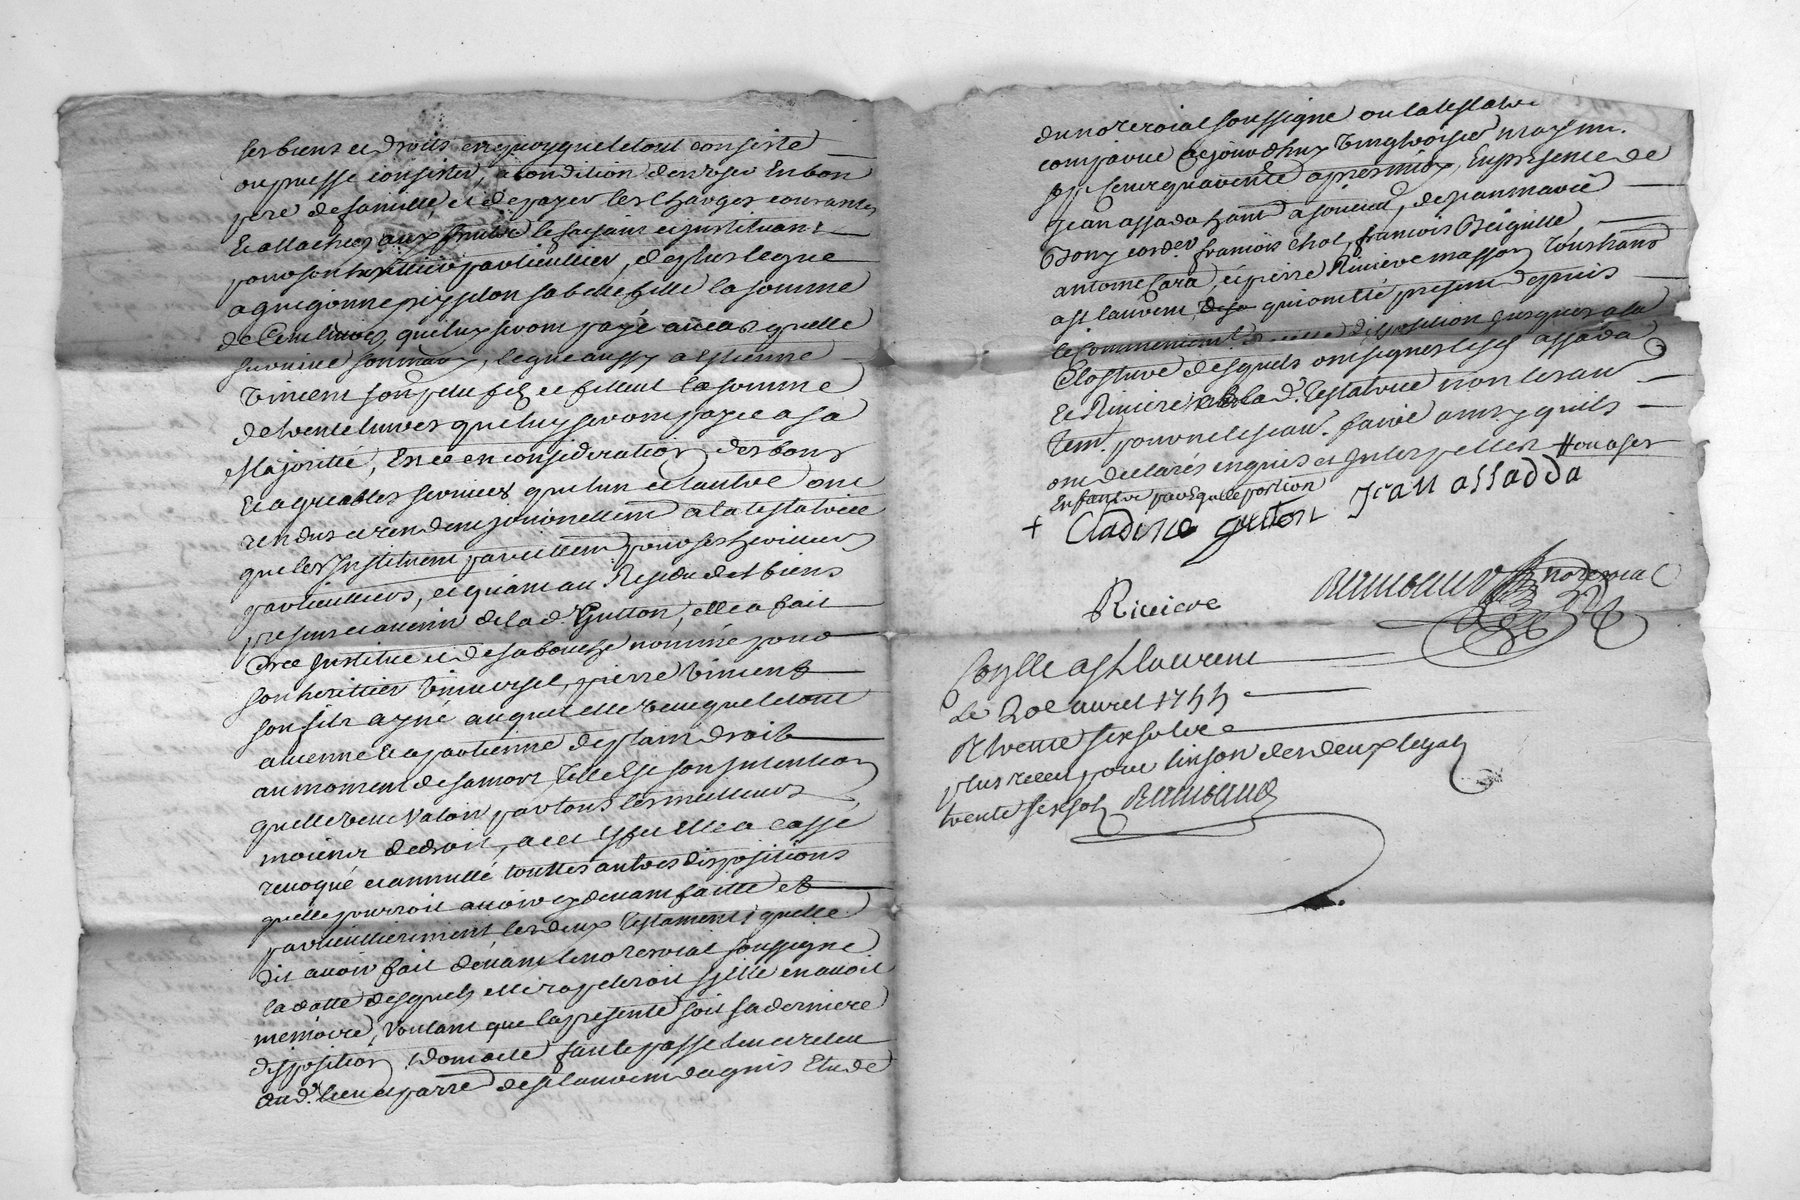 ses biens et droits en quoy que letout consiste
ou puisse consister, a condition denuser En bon
pere de famille et de payer les charges courantes
Et attachees aux fruits le faisant et jnstituant
pour son heritier particullier, de plus legue
a gnigonne peysselon sa belle fille la somme
de Cent livres, quiluy seront payé aucas quelle
survive son mary, legue aussy a Estienne
Vincent son petit fils et filleul la somme
de trente livres queluy seront payee a sa
Majorité, Et ce en consideration des bons
Et agreables services que lun et lautre ont
rendus et rendent journellement a la testatrice
que les Jnstituent pareillement pour ses heritiers
particulliers, et quant au Residu des biens
presents et avenir de la d. Gutton, elle a fait
Cree Jnstitue et de sa bouche nommé pour
son herittier Universel, pierre Vincent
son fils ayné auquel elle veut que letout
avienne Et apartienne de plain droit
au moment de sa mort, Telle Est son Jntention
quelle veut valoir par tous les meilleurs
moiens de droit, a cet Effet Elle a casse
revoqué et annullé touttes autres dispositions
quelle pourroit avoir cy devant faitte et
particullierement les deux testaments quelle
dit avoir fait devant le no.re royal soussigne
la datte desquels elle rapeleroit sy Elle en avoit
memoire, Voulant que la presente soit sa derniere
disposition, dont acte fait et passe
au d. lieu et parre de st laurent dagnis Etude
du no.re roial soussigne ou la testatrice
comparue ce jourdhuy Vingt troisie. mars mil
sept cent quarente apres midy, En presence de
Jean assada hant a soucieu, de jean marie
Bony cordr. francois chol, francois Béguille,
antoine Cara, et pierre Riviere masson Tous hants
a st laurent qui ont été present depuis
le Commencement disposition jusques a la
Closture desquels ont signes les sl. assada
Et Riviere la d. Testatrice non les aut.
Tem. pour ne le scav. faire ainsy quils
ont declarés enquis et Jnterpelles
+ Cladine guton Jean assadda
Riviere Rambaud no.re roial
Conlle a st laurent
Le 20e avril 1744
R trente six sols
plus receu pour linson des deux legats
trente six sols Rambaud